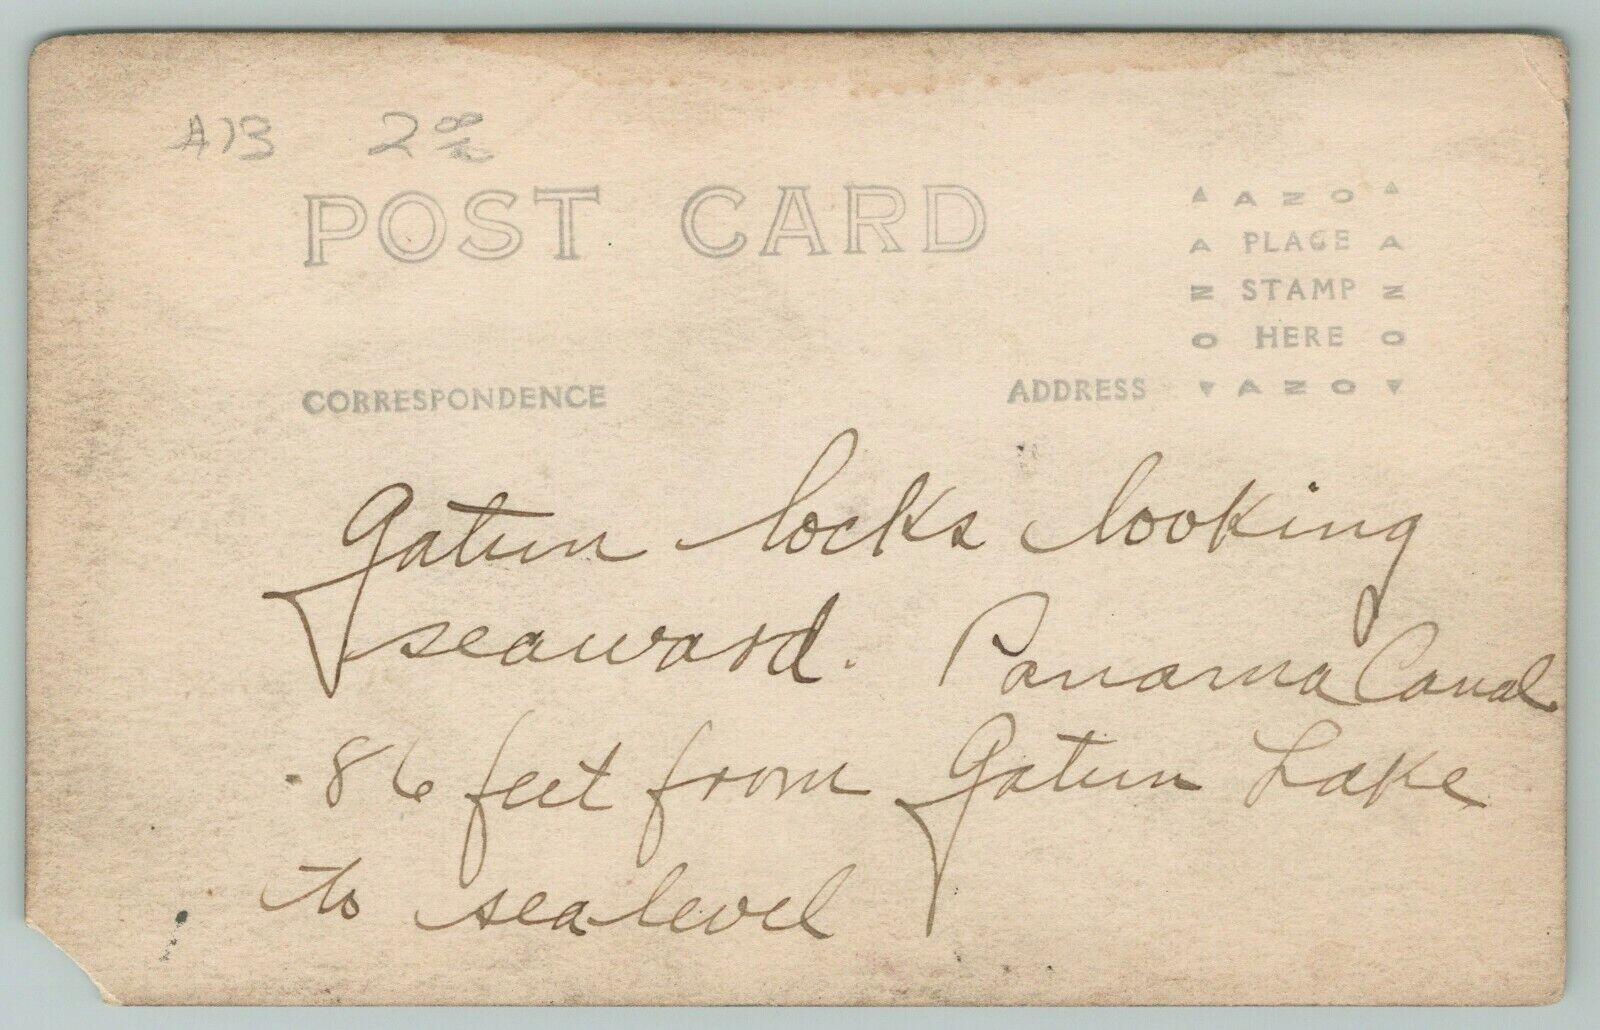 A13 2
POST CARD
AZO
A PLACE A
Z STAMP Z
O HERE O
AZO
CORRESPONDENCE ADDRESS
Gatun locks looking
seaward. Panama Canal
86 feet from Gatun Lake
to sea level